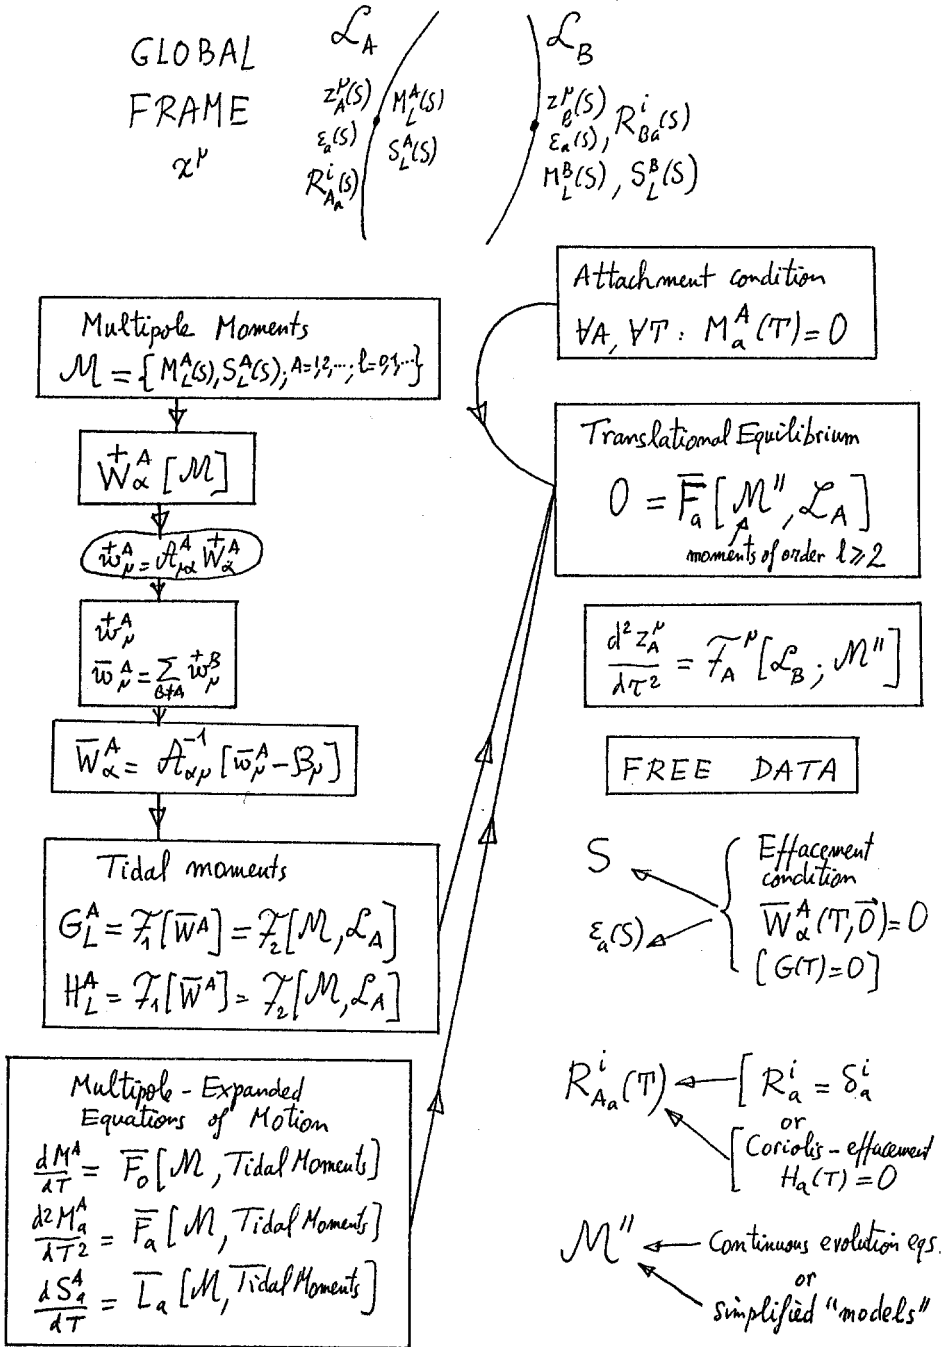 GLOBAL
FRAME
x^μ
ℒ_A
z_A^μ(S) M_L^A(S)
ε_a(S) S_L^A(S)
R_{A a}^i(S)
ℒ_B
z_B^μ(S)
ε_a(S), R_{B a}^i(S)
M_L^B(S), S_L^B(S)
Multipole Moments
ℳ = { M_L^A(S), S_L^A(S); A=1,2,...; l=0,1,... }
W⁺_α^A [ℳ]
w⁺_μ^A = 𝒜_{μα}^A W⁺_α^A
w⁺_μ^A
w̄_μ^A = Σ_{B≠A} w⁺_μ^B
W̄_α^A = 𝒜_{αμ}^{-1} [w̄_μ^A - ℬ_μ]
Tidal moments
G_L^A = ℱ_1[W̄^A] = ℱ_2[ℳ, ℒ_A]
H_L^A = ℱ_1[W̄^A] = ℱ_2[ℳ, ℒ_A]
Multipole - Expanded
Equations of Motion
dM^A/dT = F̄_0 [ℳ, Tidal Moments]
d²M_a^A/dT² = F̄_a [ℳ, Tidal Moments]
dS_a^A/dT = L̄_a [ℳ, Tidal Moments]
Attachment condition
∀A, ∀T : M_a^A(T) = 0
Translational Equilibrium
0 = F̄_a [ℳ''_A, ℒ_A]
moments of order l ⩾ 2
d²z_A^μ/dτ² = ℱ̃_A^μ [ℒ_B ; ℳ'']
FREE DATA
S
ε_a(S)
Effacement
condition
W̄_α^A(T, 0⃗) = 0
[G(T) = 0]
R_{A a}^i(T)
[R_a^i = δ_a^i
or
[Coriolis - effacement
H_a(T) = 0
ℳ''
Continuous evolution eqs.
or
simplified "models"